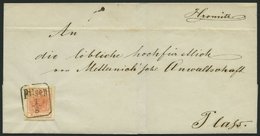 An
die löbliche hochfürstlich
von Metternich'sche Anwaltschaft
Plass.
PILSEN